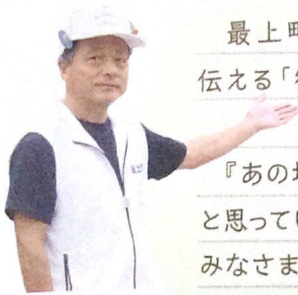 最上町
伝える「
『あの
と思ってい
みなさま